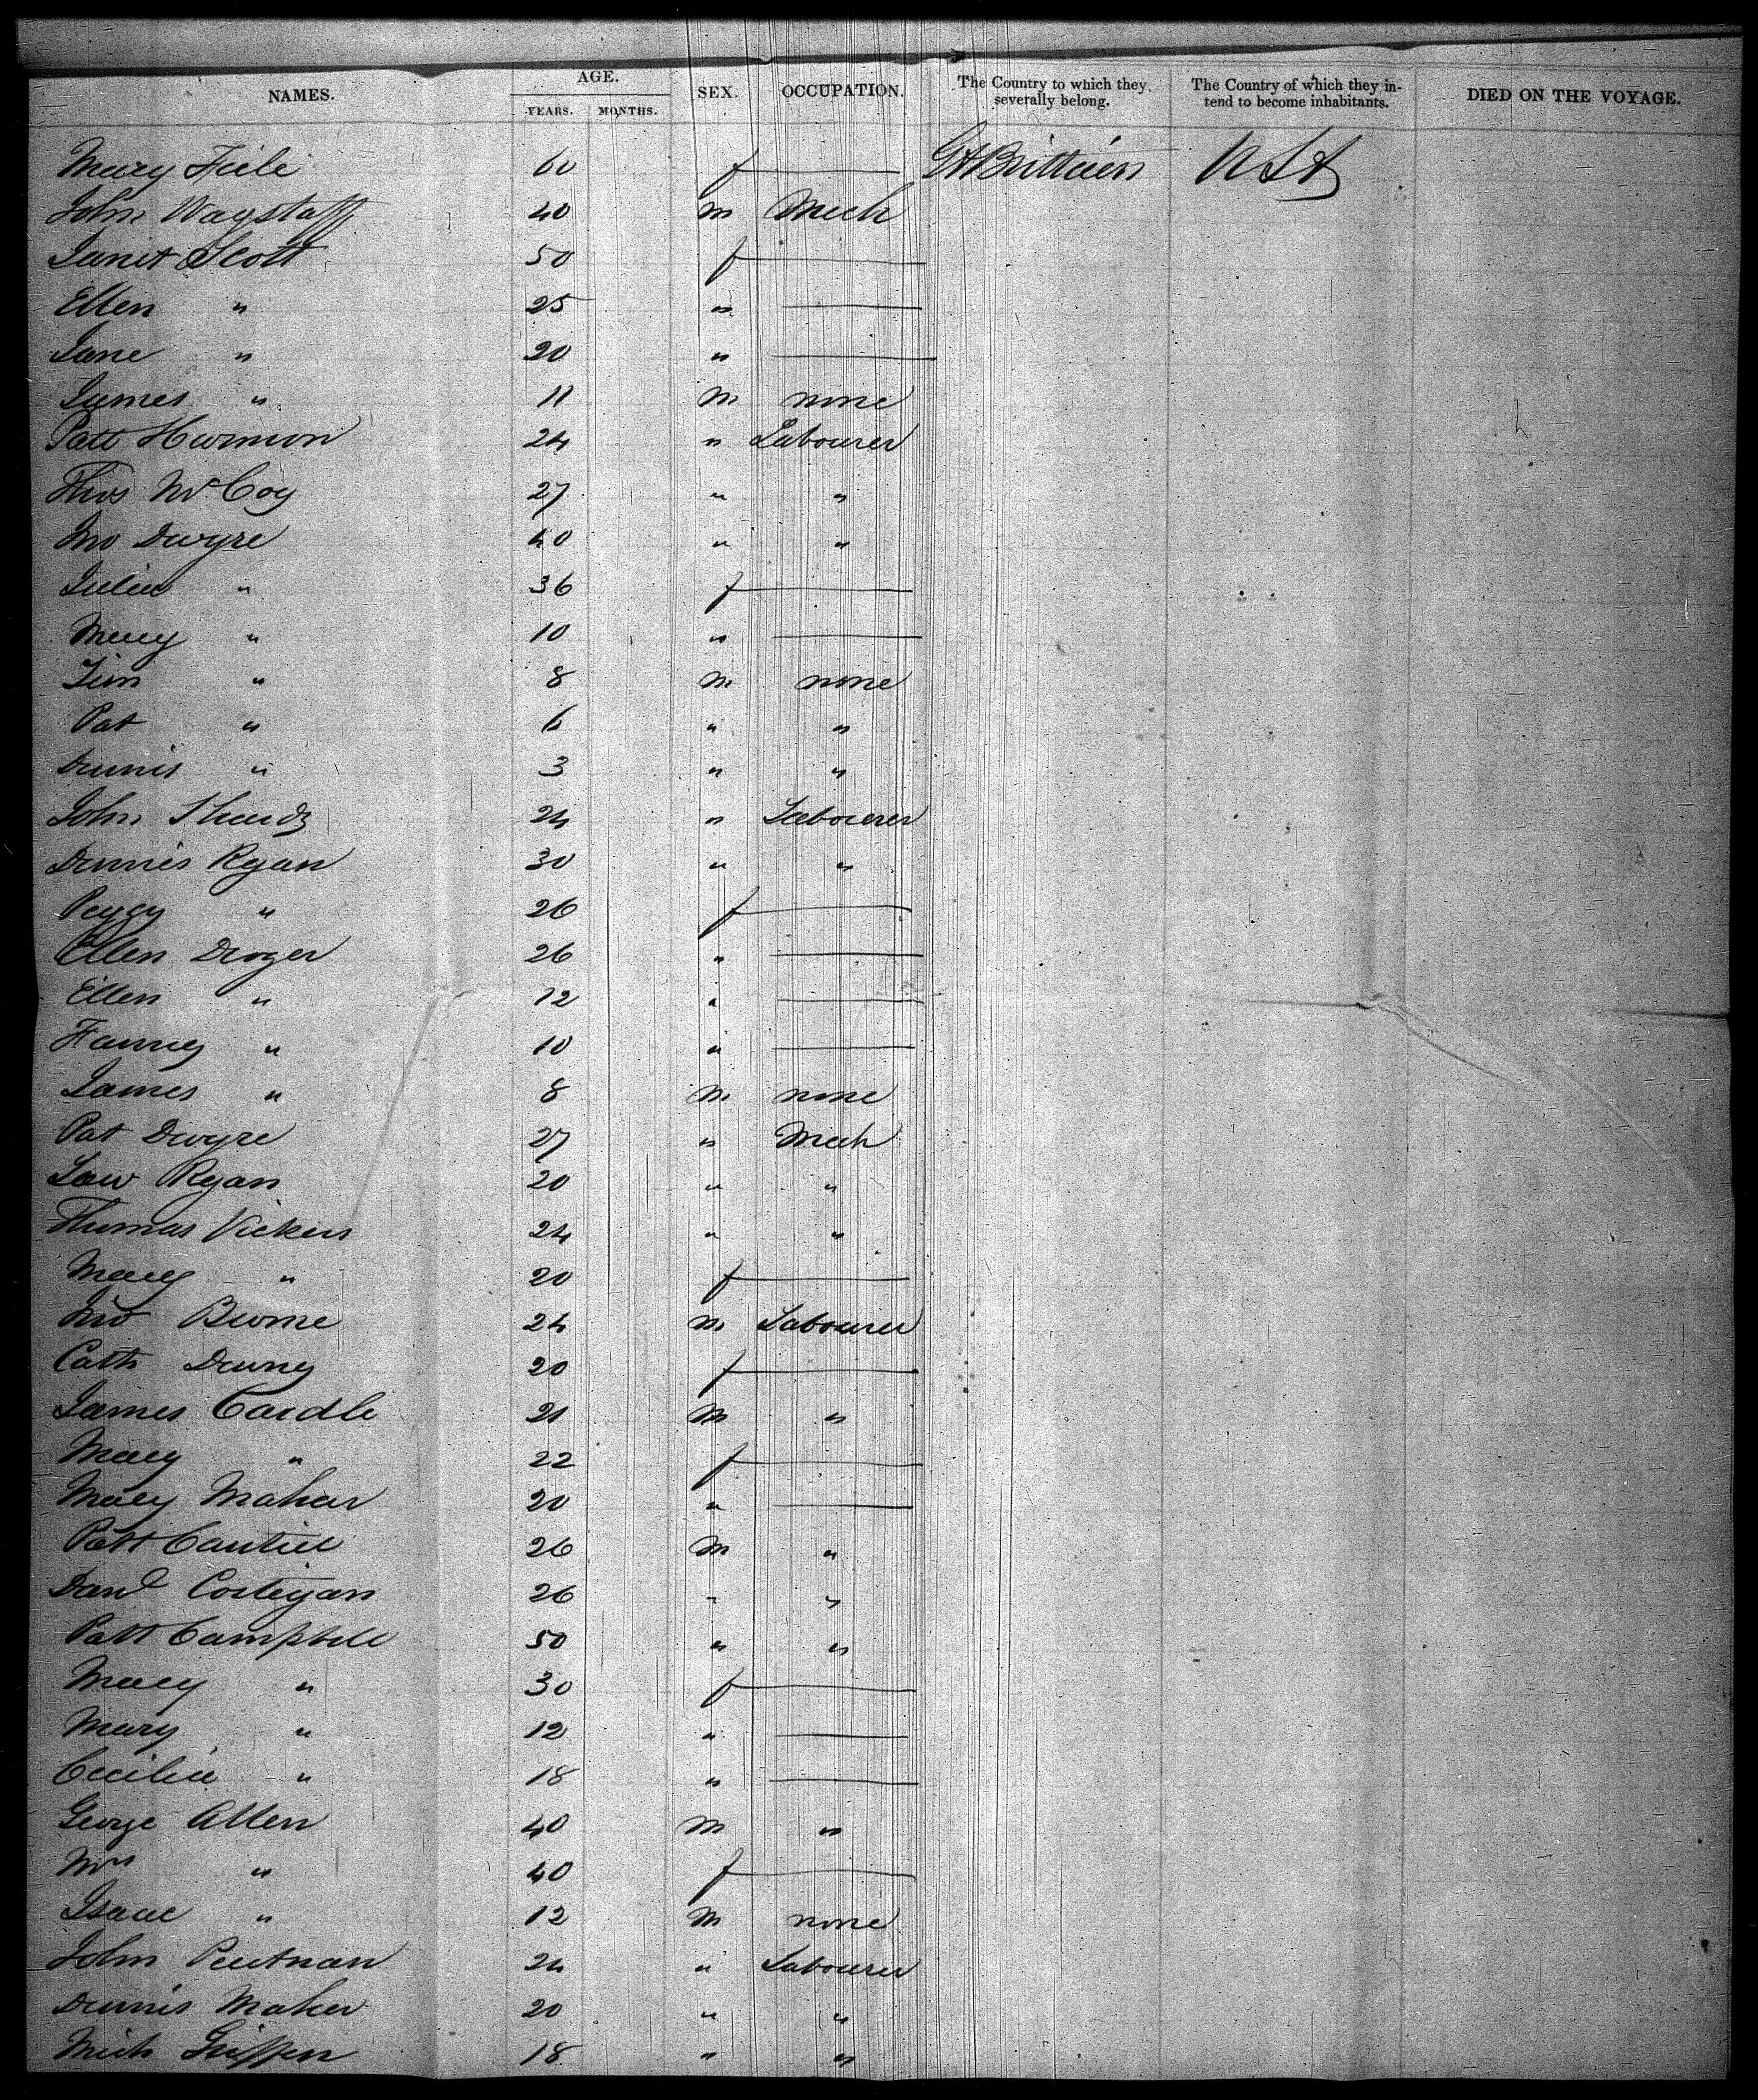 NAMES. AGE. SEX. OCCUPATION. The Country to which they severally belong. The Country of which they intend to become inhabitants. DIED ON THE VOYAGE.
YEARS. MONTHS.
Mary 60 f Gt Brittain USA
John Wagstaff 40 m Mech
Janet Scott 50 f
Ellen " 25 "
Jane " 20 "
James " 11 m none
Patt Harmon 24 " Labourer
Thos McCoy 27 " "
Jno Dwyre 40 " "
Julia " 36 f
Mary " 10 "
Tim " 8 m none
Pat " 6 " "
Dennis " 3 " "
John 24 " Labourer
Dennis Ryan 30 " "
Peggy " 26 f
Ellen Droger 26 "
Ellen " 12 "
Fanney " 10 "
James " 8 m none
Pat Dwyre 27 " Mech
Law Ryan 20 " "
Thomas Vickers 24 " "
Mary " 20 f
Jno Burne 24 m Labourer
Cath 20 f
James Cardle 21 m "
Mary " 22 f
Mary Mahar 20 "
Patt 26 m "
Danl Costigan 26 " "
Patt Campbell 50 " "
Mary " 30 f
Mary " 12 "
Cecilia " 18 "
George Allen 40 m "
Mrs " 40 f
Isaac " 12 m none
John Peutnan 24 " Labourer
Dennis Maher 20 " "
Mich Griffen 18 " "